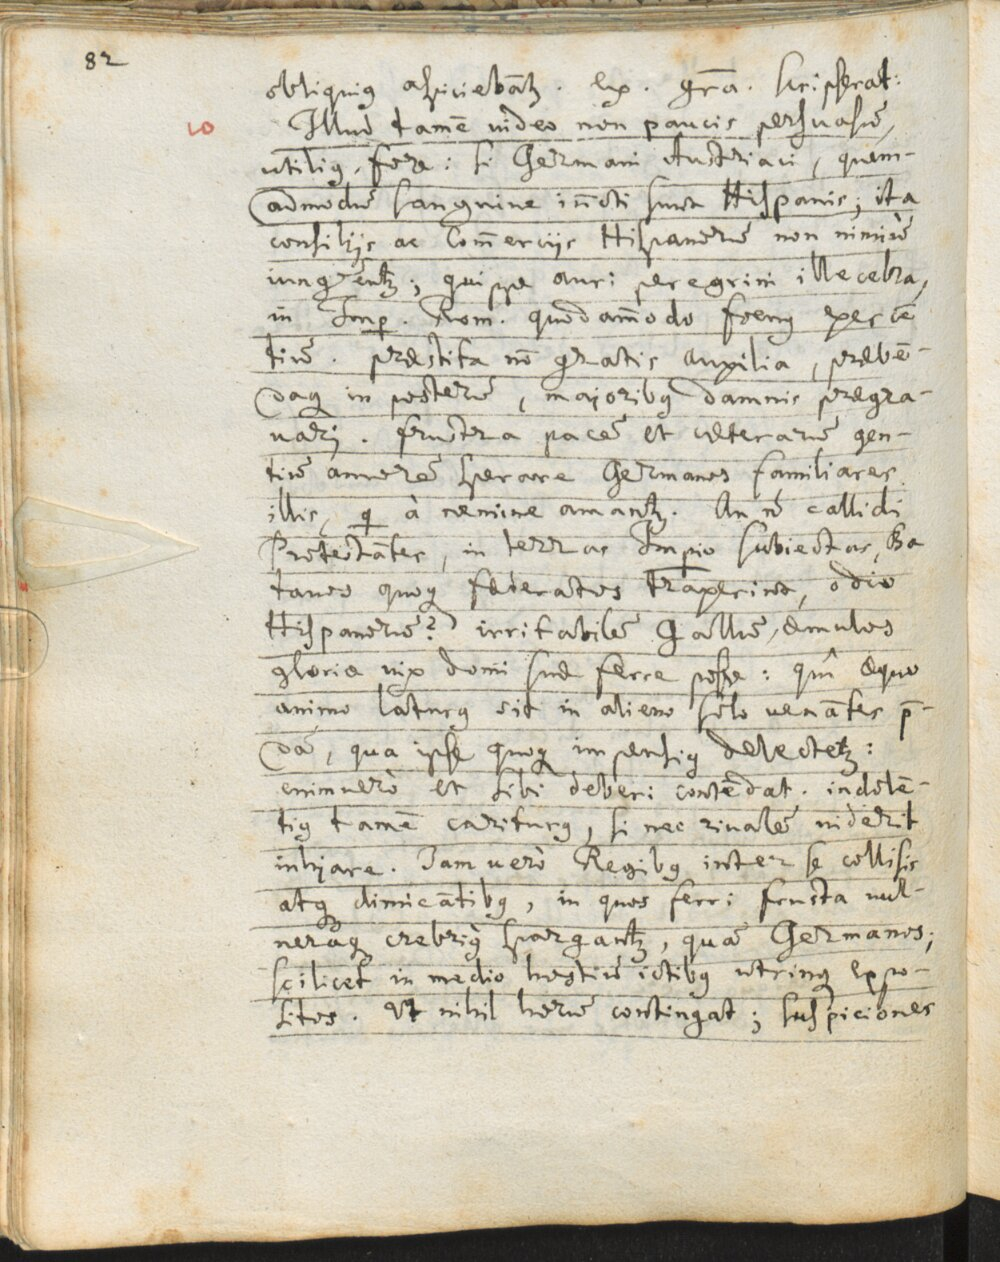 82
obliquiꝰ aspiciebātꝫ. ex. grā. scripserat:
10
Illud tamē uideo non paucis persuasū,
utiliꝰ fore: si Germani Austriaci, quem-
admodū sanguine iūcti sunt Hispanis; ita
consilijs ac Com̄ercijs Hispanorū non nimiū
iungerēntꝫ; quippe auri peregrini illecebra,
in Imp. Rom. quodam̄odo foenꝰ exercē
tiū. præstita nō gratis auxilia, præbē-
daqꝫ in posterū, majoribꝰ damnis prægra-
uari. frustra pacē et cæterarū gen-
tiū amorē sperare Germanos familiares
illis, qi à nemine amantꝫ. An nō callidi
Protestātes, in terras Impio subiectas, Ba
tauos quoqꝫ fæderatos traxerint, odio
Hispanorū? irritabilē Gallū, æmulos
gloriæ uix domi suæ ferre posse: quî æquo
animo laturꝰ sit in alieno solo uenātes p̄-
dā, qua ipse quoqꝫ impensiꝰ delectetꝫ:
enimuerò et sibi deberi contēdat. indolē-
tiꝰ tamē cariturꝰ, si nec riualē uiderit
inhjare. Iam uerò Regibꝰ inter se collisis
atqꝫ dimicātibꝰ, in quos ferri frusta uul-
neraqꝫ crebriꝰ spargantꝫ, quā Germanos;
scilicet in medio hostiū ictibꝰ utrinqꝫ expo-
sitos. Vt nihil horū contingat; suspiciones